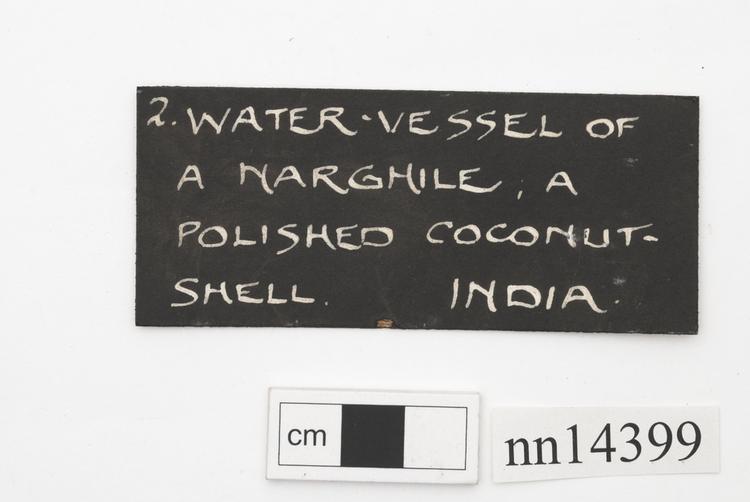 2. WATER-VESSEL OF
A NARGHILE, A
POLISHED COCONUT-
SHELL. INDIA.
cm
nn14399